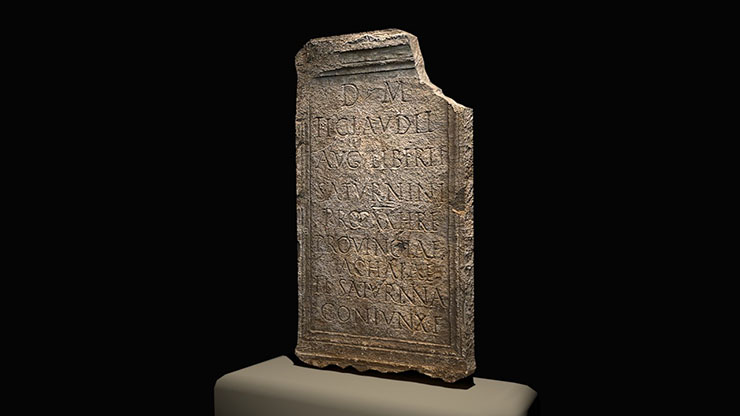 D M
TI CLAVDII
AVG LIBERTI
SATVRNINI
PROC XX HRE
PROVINCIAE
ACHAIAE
SATVRNINA
CONIVNX F